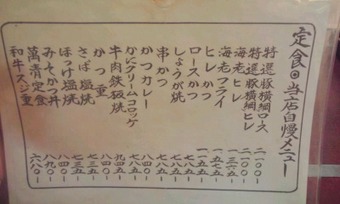 定食◎当店自慢メニュー
特選豚横綱ロース 二一〇〇
特選豚横綱ヒレ 二一〇〇
海老ヒレ 一三六五
海老フライ 一五七五
ヒレかつ
ロースかつ
しょうが焼
串かつ
かつカレー
かにクリームコロッケ
牛肉鉄板焼 九四五
かつ重
さば塩焼 七三五
ほっけ塩焼 八四〇
みそかつ丼 八四〇
萬清定食 七三五
和牛スジ重 六八〇